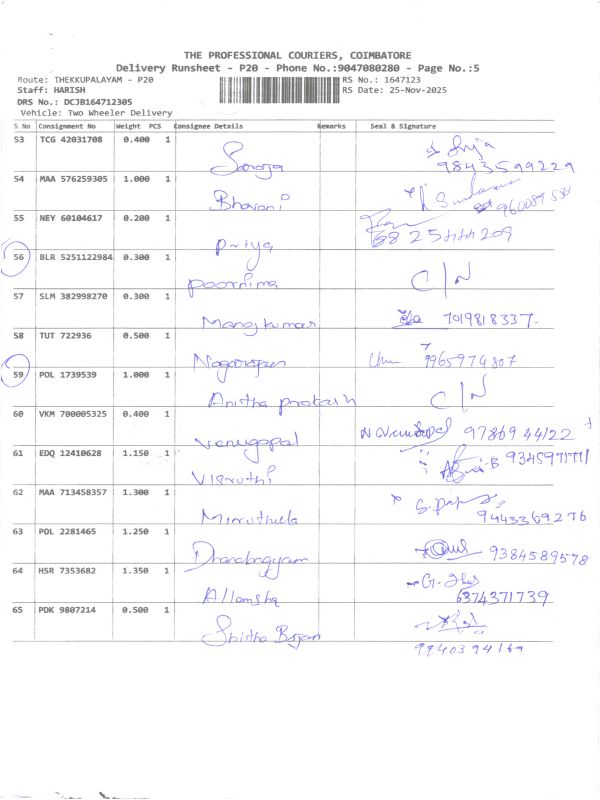 THE PROFESSIONAL COURIERS, COIMBATORE
Delivery Runsheet - P20 - Phone No.:9047080280 - Page No.:5
Route: THEKKUPALAYAM - P20 RS No.: 1647123
Staff: HARISH RS Date: 25-Nov-2025
DRS No.: DCJB164712305
Vehicle: Two Wheeler Delivery
S No Consignment No Weight PCS Consignee Details Remarks Seal & Signature
53 TCG 42031708 0.400 1
Saroja 9843599229
54 MAA 576259305 1.000 1
Bhavani
55 NEY 60104617 0.200 1
Priya
56 BLR 5251122984 0.300 1
Poornima C/N
57 SLM 382998270 0.300 1
Manojkumar 7019818337
58 TUT 722936 0.500 1
Nagarajan 9965974807
59 POL 1739539 1.000 1
Anitha prakash C/N
60 VKM 700005325 0.400 1
Venugopal N Venugopal 9786944122
61 EDQ 12410628 1.150 1
Visruthi
62 MAA 713458357 1.300 1
Miruthula 9443369276
63 POL 2281465 1.250 1
9384589578
64 HSR 7353682 1.350 1
6374371739
65 PDK 9807214 0.500 1
9940394169